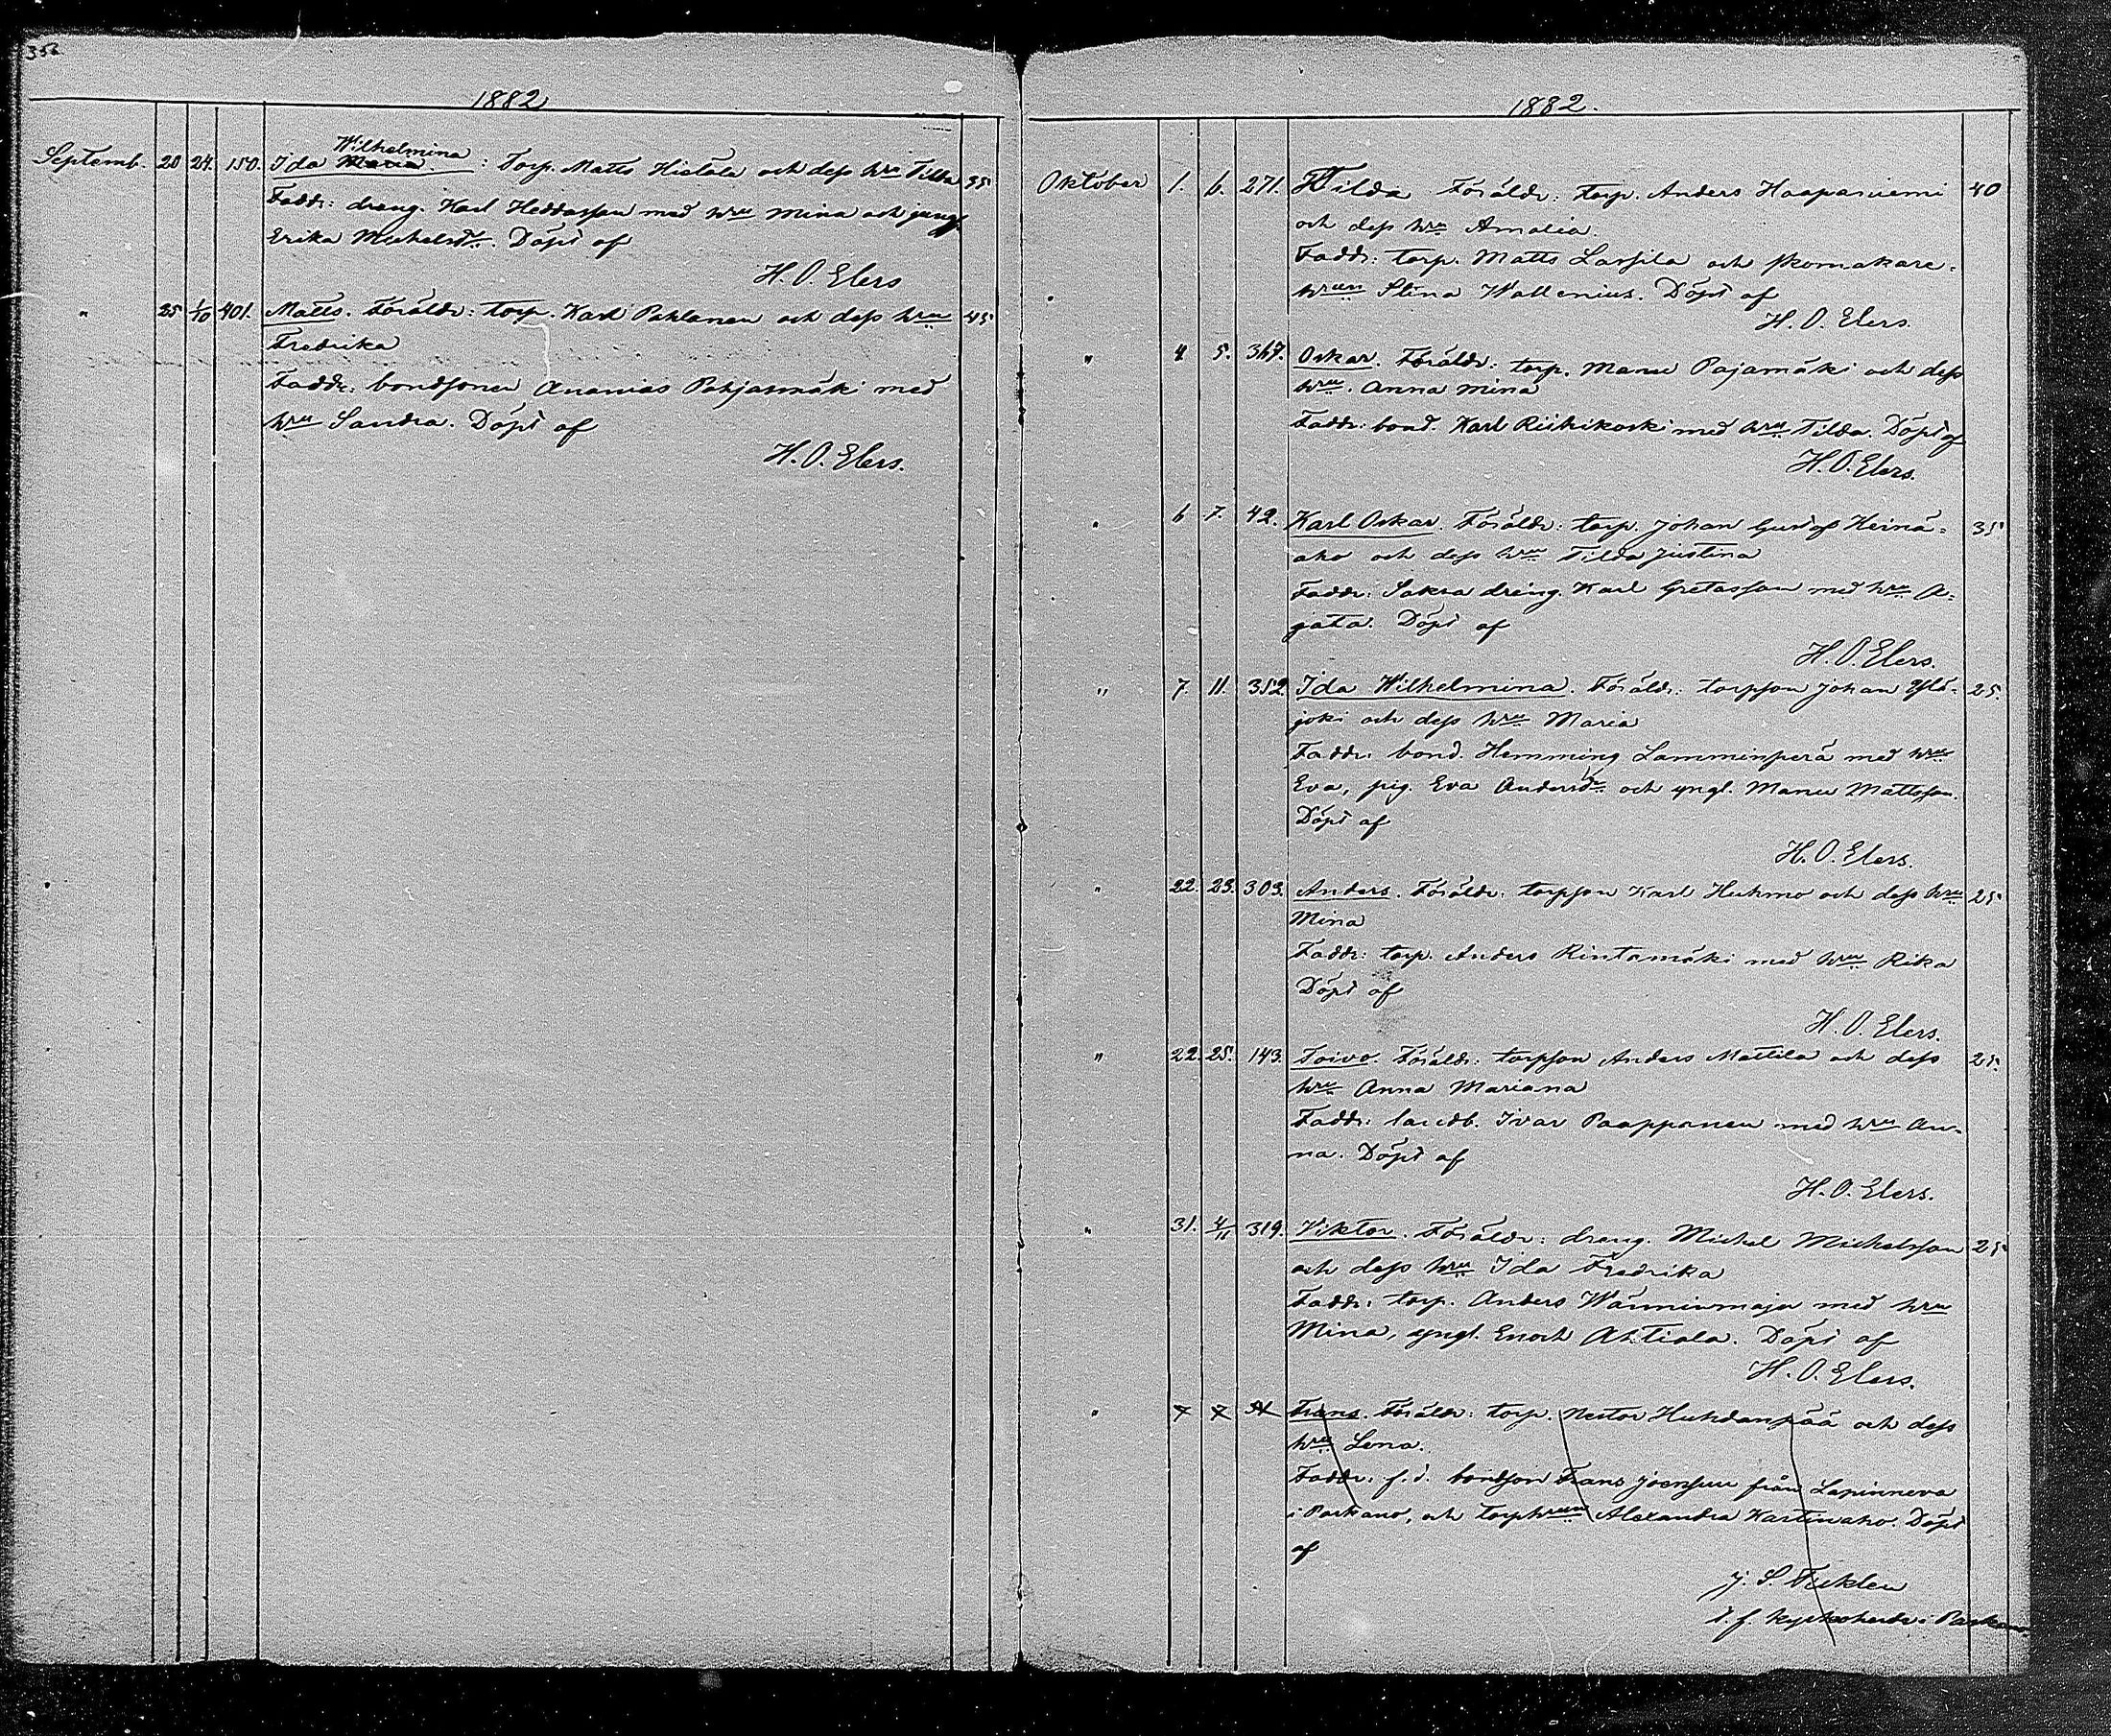 356
1882
Septemb. 20 24. 150. Ida Wilhelmina Maria : Torp. Matts Hietala och dess hru Tilda 35
Faddr: dräng. Karl Heddasson med hru Mina och jungf.
Erika Michelsdr. Döpt af
H. O. Elers
" 25 1/10 401. Matts. Föräldr: torp. Karl Pahlanen och dess hru 45
Fredrika
Faddr: bondsonen Ananias Pohjasmäki med
hru Sandra. Döpt af
H. O. Elers.
1882.
Oktober 1. 6. 271. Hilda Föräldr: torp. Anders Haapaniemi 40
och dess hru Amalia.
Faddr: torp. Matts Lassila och skomakare-
hrun Stina Wallenius. Döpt af
H. O. Elers.
" 4 5. 367. Oskar. Föräldr: torp. Manu Pajamäki och dess
hru. Anna Mina
Faddr: bond. Karl Riihikoski med hru Tilda. Döpt af
H. O. Elers.
" 6 7. 42. Karl Oskar. Föräldr: torp. Johan Gustaf Heinä- 35
aho och dess hru Tilda Justina
Faddr: Sakra dräng. Karl Gretasson med hru A-
gata. Döpt af
H. O. Elers.
" 7. 11. 352 Ida Wilhelmina. Föräldr: torpson Johan Ylä- 25.
joki och dess hru Maria
Faddr: bond. Hemming Lamminperä med hru
Eva, pig. Eva Andersdr. och yngl. Manu Mattsson.
Döpt af
H. O. Elers.
" 22. 23. 303. Anders. Föräldr: torpson Karl Huhmo och dess hru 25
Mina
Faddr: torp. Anders Rintamäki med hru Rika
Döpt af
H. O. Elers.
" 22. 25. 143. Toivo. Föräldr: torpson Anders Mattila och dess 25.
hru Anna Mariana
Faddr: landb. Ivar Paappanen med hru An-
na. Döpt af
H. O. Elers.
" 31. 4/11 319. Viktor. Föräldr: dräng. Michel Michelsson 25
och dess hru Ida Fredrika
Faddr: torp. Anders Wänninmaja med hru
Mina, yngl. Enoch Ahtiala. Döpt af
H. O. Elers.
" Frans. Föräldr: torp. Nestor Huhdanpää och dess
hru Lena.
Faddr: f.d. bondson Frans Joensuu från Lapinneva
i Parkano, och torphrun Alexandra Kartinaho. Döpt
af
J. S.
t. f. kyrkoherde i Parkano.